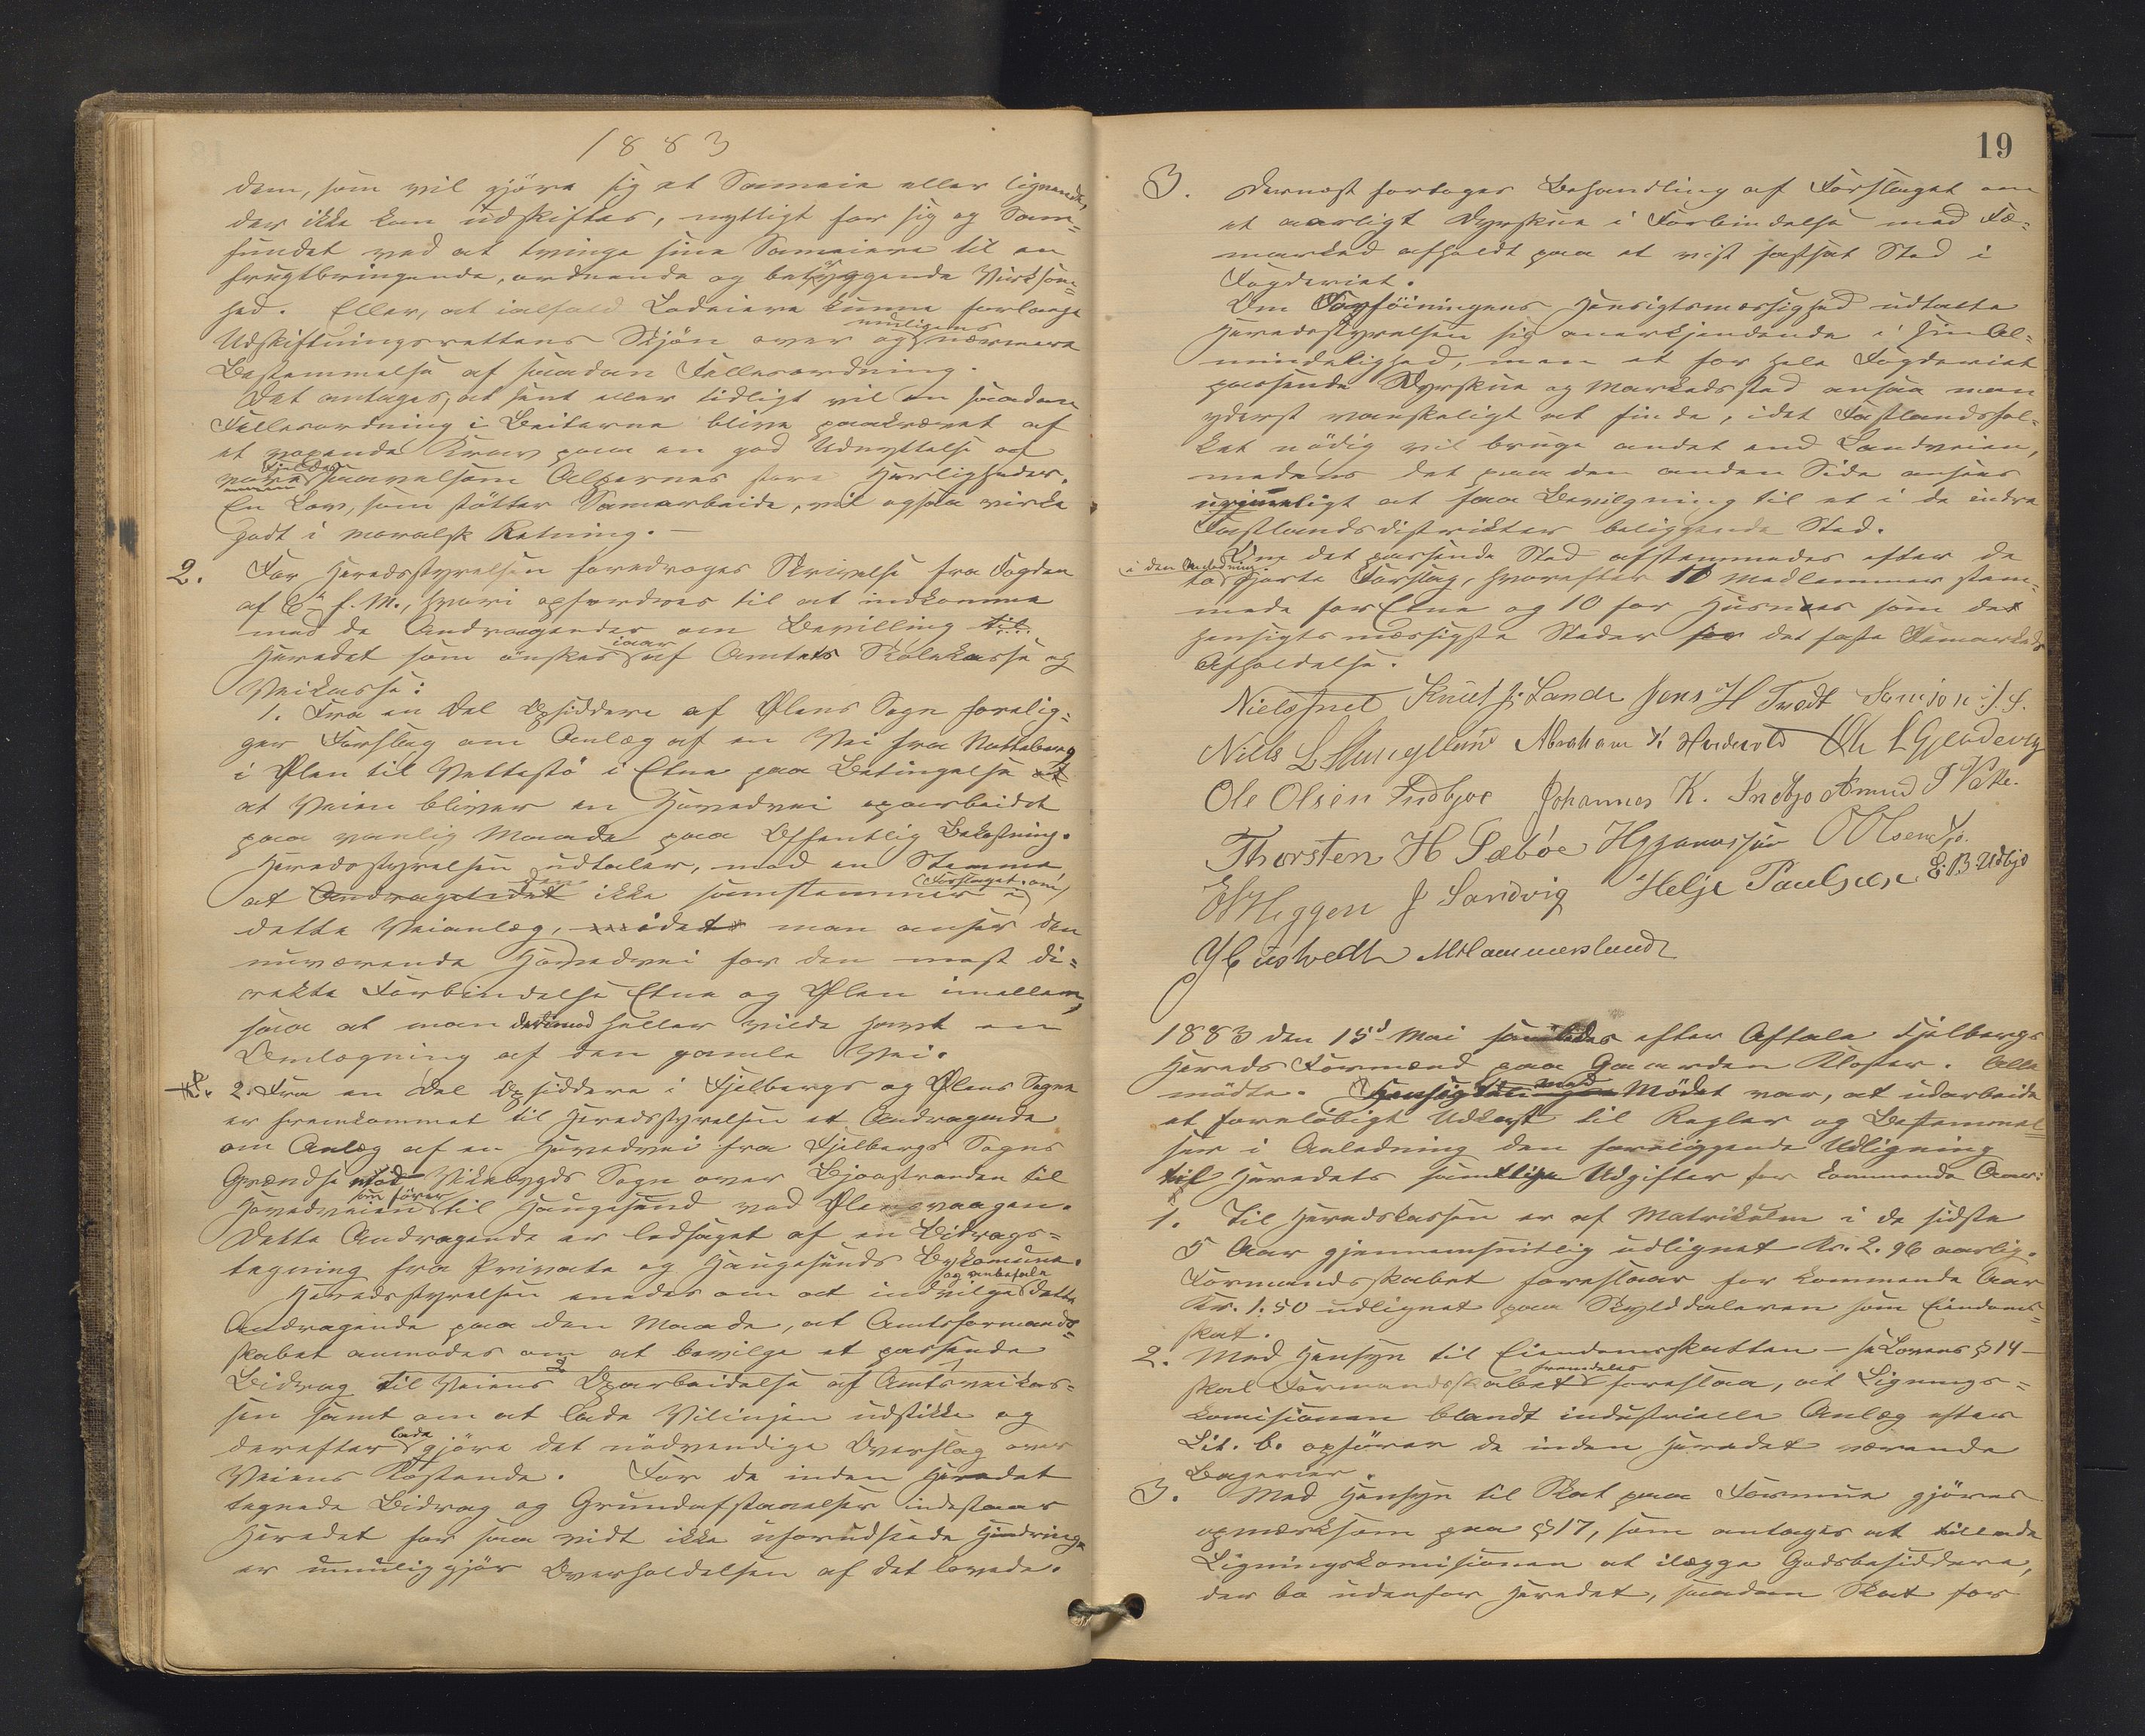 1883
dem, som vil gjöre sig et Sameie eller lignende,
der ikke kan udskiftes, nyttigt for sig og Sam=
fundet ved at tvinge sine Sameiere til en
frugtbringende, ordnende og betryggende Virksom=
hed. Eller, at ialfald Lodeiere kunne forlange
Udskiftningsrettens Skjön over og muligens nærmere
Bestemmelse af saadan Fællesordning.
Det antages, at sent eller tidligt vil en saadan
Fællesordning i Beiterne blive paakrævet af
et voxende Krav paa en god Udnyttelse af
vore Fjeldes saavelsom Alpernes store Herligheder.
En Lov, som stötter Samarbeide, vil ogsaa virke
godt i moralsk Retning.—
2. For Heredsstyrelsen foredroges Skrivelse fra Fogden
af f. M., hvori opfordres til at indkomme
med de Andragender om Bevilling til
Heredet som önskes iaar af Amtets Skolekasse og
Veikasse:
1. Fra en Del Opsiddere af Ølens Sogn forelig=
ger Forslag om Anlæg af en Vei fra Natteberg
i Ølen til Vettestö i Etne paa Betingelse
at Veien bliver en Hovedvei oparbeidet
paa vanlig Maade paa Offentlig Bekostning.
Heredsstyrelsen udtaler, med en Stemme
at den ikke samstemmer i (Forslaget om)
dette Veianlæg, idet man anser den
nuværende Hovedvei for den mest di=
rekte Forbindelse Etne og Ølen imellem,
saa at man derimod heller vilde havt en
Omlægning af den gamle Vei.
2. Fra en Del Opsiddere i Fjelbergs og Ølens Sogne
er fremkommet til Heredsstyrelsen et Andragende
om Anlæg af en Hovedvei fra Fjelbergs Sogns
Grændse mod Vikebygds Sogn over Bjoastranden til
Hovedveien som förer til Haugesund ved Ølensvaagen.
Dette Andragende er ledsaget af en Bidrags=
tegning fra Private og Haugesunds Bykomune.
Heredsstyrelsen enedes om at indvilge og anbefale dette
Andragende paa den Maade, at Amtsformand=
skabet anmodes om at bevilge et passende
Bidrag til Veiens Oparbeidelse af Amtsveikas=
sen samt om at lade Veilinjen udstikke og
derefter lade gjöre det nödvendige Overslag over
Veiens Kostende. For de inden Heredet
tegnede Bidrag og Grundafstaaelser indestaar
Heredet for saa vidt ikke uforudseede Hindringe
er umuliggjör Overholdelsen af det lovede.
19
3. Dernæst foretoges Behandling af Forslaget om
et aarligt Dyrskue i Forbindelse med Fæ=
marked afholdt paa et vist fastsat Sted i
Fogderiet.
Om Forföiningens Hensigtsmæssighed udtalte
Heredsstyrelsen sig anerkjendende i sin Al=
mindelighed, men et for hele Fogderiet
passende Dyrskue og Markedssted ansaa man
yderst vanskeligt at finde, idet Fastlandsfol=
ket nödig vil bruge andet end Landveien,
medens det paa den anden Side ansees
urimeligt at faa Bevilgning til et i de indre
Fastlandsdistrikter beliggende Sted.
Om det passende Sted afstemmedes efter de
to i den Anledning gjorte Forslag, hvorefter 11 Medlemmer stem=
mede for Etne og 10 for Husnes som det
hensigtsmæssigste Steder for det faste Fæmarkeds
Afholdelse.
Knut J. Lande Jens H Tvedt
Niels L Abraham K Ole L Gjerdevig
Ole Olsen Indbjoe Johannes K. Indbjo Amund
Thorsten H Sæböe
E Heggen J Sandvig Helje Paulsen E. B. Udbjo
M Hammersland
1883 den 15d Mai samledes efter Aftale Fjelbergs
Hereds Formænd paa Gaarden Kloster. Alle
mödte. Hensigten med Mödet var, at udarbeide
et foreløbigt Udkast til Regler og Bestemmel=
ser i Anledning den foreliggende Udligning
til Heredets samtlige Udgifter for kommende Aar:
1. Til Heredskassen er af Matrikulen i de sidste
5 Aar gjennemsnitlig udlignet Kr. 2.96 aarlig.
Formandsskabet foreslaar for kommende Aar
Kr. 1.50 udlignet paa Skylddaleren som Eiendoms=
skat.
2. Med Hensyn til Eiendomsskatten – se Lovens § 14 –
skal Formandsskabet fremdeles foreslaa, at Lignings=
komisionen blandt industrielle Anlæg efter
Lit. b. opförer de inden Heredet værende
Bagerier.
3. Med Hensyn til Skat paa Formue gjöres
opmærksom paa § 17, som antages at tillade
Ligningskomisionen at ilægge Godsbesiddere,
der bo udenfor Heredet, saadan Skat for